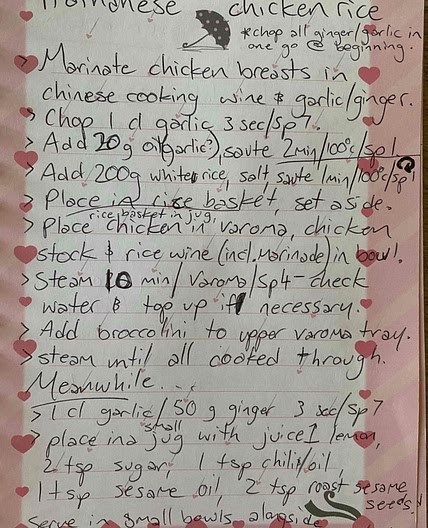 Hainanese chicken rice
*chop all ginger/garlic in
one go @ beginning.
> Marinate chicken breasts in
chinese cooking wine & garlic/ginger.
> Chop 1 cl garlic 3 sec/sp7.
> Add 20g oil (garlic?), saute 2min/100°c/sp1
> Add 200g white rice, salt saute 1min/100°c/sp1
> Place in rice basket, set aside.
rice basket in jug,
> Place chicken in varoma, chicken
stock & rice wine (incl. Marinade) in bowl.
> Steam 10 min/Varoma/Sp4 - check
water & top up if necessary.
> Add broccolini to upper varoma tray.
> steam until all cooked through.
Meanwhile...
> 1 cl garlic/50 g ginger 3 sec/sp7
> place in a small jug with juice 1 lemon,
2 tsp sugar, 1 tsp chilli/oil,
1 tsp sesame oil, 2 tsp roast sesame
seeds
Serve in small bowls alongside